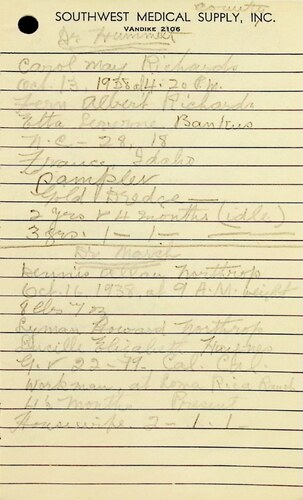 county
SOUTHWEST MEDICAL SUPPLY, INC.
VANDIKE 2106
Dr. Hummel
Carol May Richards
Oct. 13 1938 at 4:20 P.M.
Albert Richards
Etta Bankus
N.C - 28, 18
France, Idaho
Sampler
Gold Dredge
2 yrs & 4 months (idle)
3 yrs. 1 - 1 -
Dr. March
Dennis Allan Northrop
Oct. 16 1938, at 9 A.M. weight
8 lbs 7 oz
Lyman Howard Northrop
Lucille Elizabeth Haynes
22 - 19. Cal. Cal.
Workman, at Loma Rica Ranch
4½ months Present
Housewife 2 - 1 - 1 -